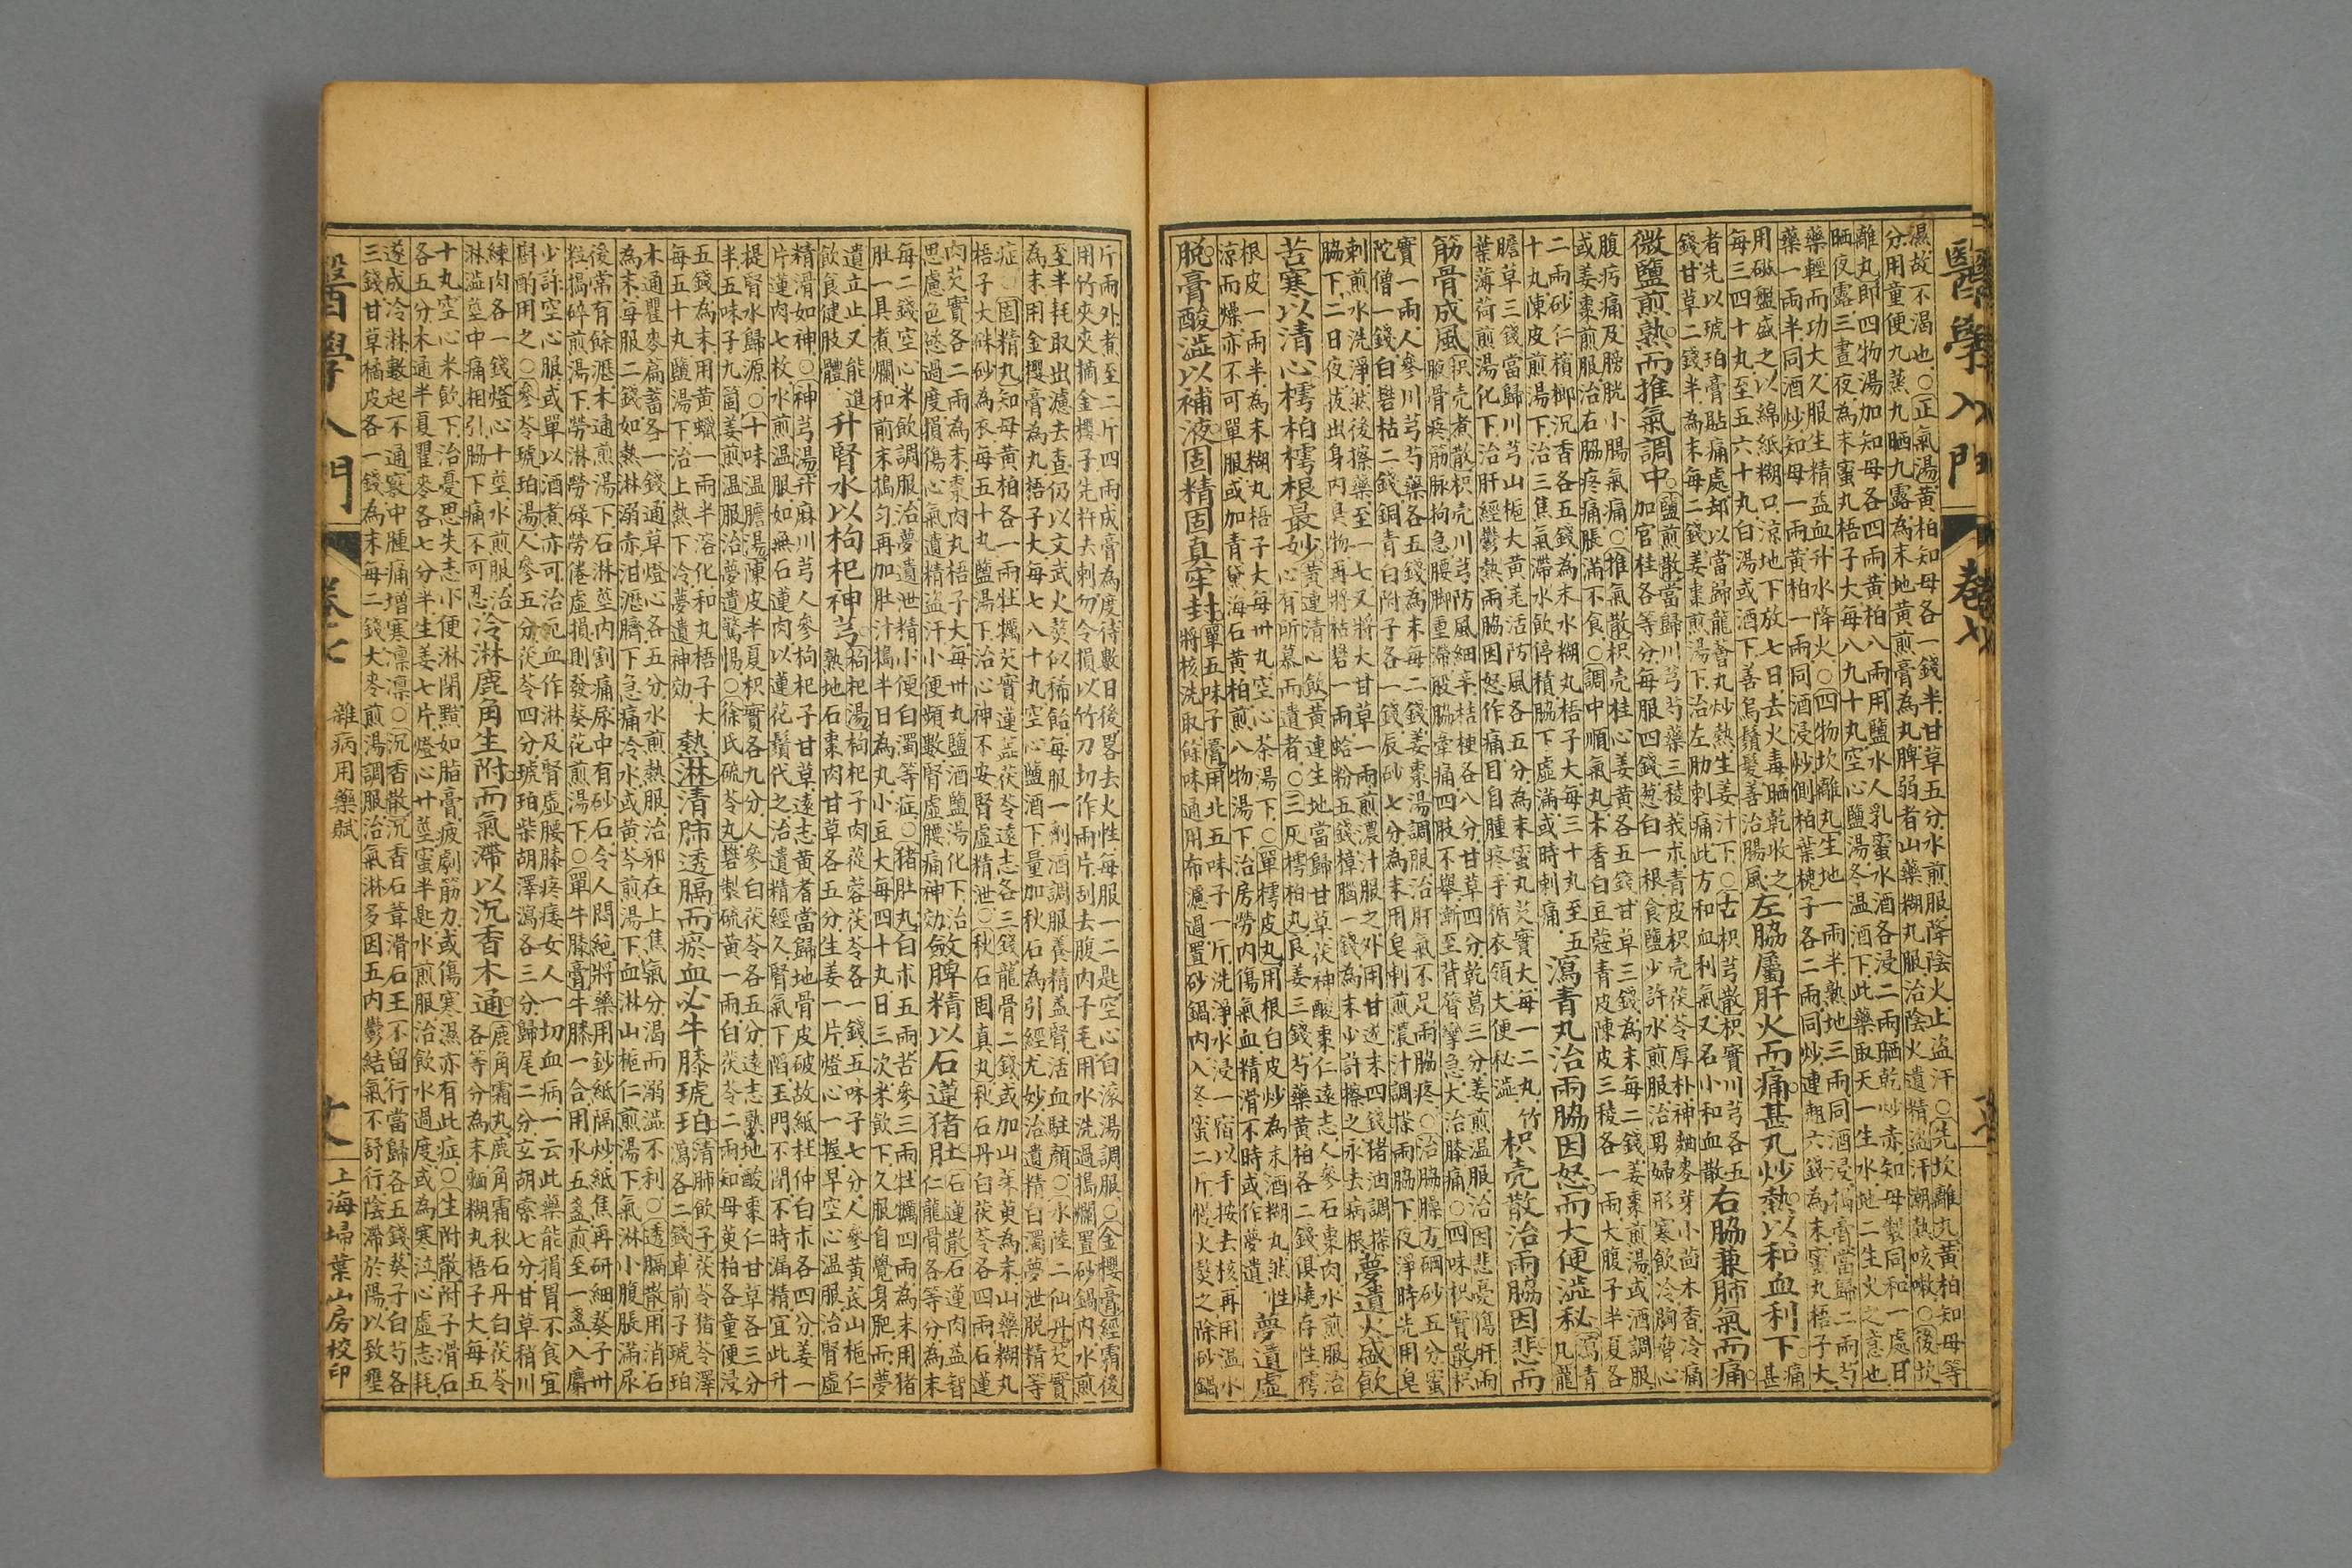 醫學入門 卷七
濕故不渴也○正氣湯黃柏知母各一錢半甘草五分水煎服降陰火止盜汗○先坎離丸黃柏知母等
分用童便九蒸九晒九露為末地黃煎膏為丸脾弱者山藥糊丸服治陰火遺精盜汗潮熱咳嗽○後坎
離丸即四物湯加知母各四兩黃柏八兩用鹽水人乳蜜水酒各浸二兩晒乾炒赤知母製同和一處日
晒夜露三晝夜為末蜜丸梧子大每八九十丸空心鹽湯冬温酒下此藥取天一生水地二生火之意也
藥輕而功大久服生精益血升水降火○四物坎離丸生地一兩半熟地三兩同酒浸搗膏當歸二兩芍
藥一兩半同酒炒知母一兩黃柏一兩同酒浸炒側柏葉槐子各二兩同炒連翹六錢為末蜜丸梧子大
用磁盤盛之以綿紙糊口涼地下放七日去火毒晒乾收之
每三四十丸至五六十丸白湯或酒下善烏鬚髮善治腸風
左脇屬肝火而痛甚丸炒熱以和血利下痛甚
者先以琥珀膏貼痛處却以當歸龍薈丸炒熱生姜汁下○古枳芎散枳實川芎各五
錢甘草二錢半為末每二錢姜棗煎湯下治左肋刺痛此方和血利氣又名小和血散
右脇兼肺氣而痛
微鹽煎熟而推氣調中
鹽煎散當歸川芎芍藥三稜莪朮青皮枳壳茯苓厚朴神麯麥芽小茴木香冷痛
加官桂各等分每服四錢葱白一根食鹽少許水煎服治男婦形寒飲冷胸脅心
腹疠痛及膀胱小腸氣痛○推氣散枳壳桂心姜黃各五錢甘草三錢為末每二錢姜棗煎湯或酒調服
或姜棗煎服治右脇疼痛脹滿不食○調中順氣丸木香白豆蔻青皮陳皮三稜各一兩大腹子半夏各
二兩砂仁檳榔沉香各五錢為末水糊丸梧子大每三十丸至五
十丸陳皮煎湯下治三焦氣滯水飲停積脇下虛滿或時刺痛
瀉青丸治兩脇因怒而大便澁秘瀉青丸龍
膽草三錢當歸川芎山梔大黃羌活防風各五分為末蜜丸芡實大每一二丸竹
葉薄荷煎湯化下治肝經鬱熱兩脇因怒作痛目自腫疼手循衣領大便秘澁
枳壳散治兩脇因悲而
筋骨成風
枳壳煮散枳壳川芎防風細辛桔梗各八分甘草四分乾葛三分姜煎温服治因悲憂傷肝兩
脇骨疼筋脉拘急腰脚重滯股脇牽痛四肢不舉漸至背膂攣急大治膝痛○四味枳實散枳
實一兩人參川芎芍藥各五錢為末每二錢姜棗湯調服治肝氣不足兩脇疼○治脇臊方硇砂五分蜜
陀僧一錢白礬枯二錢銅青白附子各一錢辰砂七分為末用皂刺煎濃汁調搽兩脇下夜淨時先用皂
刺煎水洗淨然後擦藥至一七又將大甘草一兩煎濃汁服之外用甘遂末四錢猪油調搽
脇下二日夜彼出身內臭物再將枯礬一兩蛤粉五錢樟腦一錢為末少許擦之永去病根
夢遺火盛飲
苦寒以清心樗柏樗根最妙
黃連清心飲黃連生地當歸甘草茯神酸棗仁遠志人參石棗肉水煎服治
心有所慕而遺者○三灰樗柏丸良姜三錢芍藥黃柏各二錢俱燒存性樗
根皮一兩半為末糊丸梧子大每卅丸空心茶湯下○單樗皮丸用根白皮炒為末酒糊丸然性
涼而燥亦不可單服或加青黛海石黃柏煎八物湯下治房勞內傷氣血精滑不時或作夢遺
夢遺虛
脫膏酸澁以補液固精固真牢封
單五味子膏用北五味子一斤洗淨水浸一宿以手按去核再用温水
將核洗取餘味通用布濾過置砂鍋內入冬蜜二斤慢火熬之除砂鍋
斤兩外煮至二斤四兩成膏為度待數日後畧去火性每服一二匙空心白滚湯調服○金櫻膏經霜後
用竹夾夾摘金櫻子先杵去刺勿令損以竹刀切作兩片刮去腹內子毛用水洗過搗爛置砂鍋內水煎
至半耗取出濾去查仍以文武火熬似稀餡每服一劑酒調服養精益腎活血駐顏○水陸二仙丹芡實
為末用金櫻膏為丸梧子大每七八十丸空心鹽酒下量加秋石為引經尤妙治遺精白濁夢泄脫精等
症○固精丸知母黃柏各一兩牡蠣芡實蓮蕊茯苓遠志各三錢龍骨二錢或加山茱萸為末山藥糊丸
梧子大硃砂為衣每五十丸鹽湯下治心神不安腎虛精泄○秋石固真丸秋石丹白茯苓各四兩石蓮
肉芡實各二兩為末棗肉丸梧子大每卅丸鹽酒鹽湯化下治
思慮色慾過度損傷心氣遺精盜汗小便頻數腎虛腰痛神効
斂脾精以石蓮猪肚
石蓮散石蓮肉益智
仁龍骨各等分為末
每二錢空心米飲調服治夢遺泄精小便白濁等症○猪肚丸白朮五兩苦參三兩牡蠣四兩為末用猪
肚一具煮爛和前末搗勻再加肚汁搗半日為丸小豆大每四十丸日三次米飲下久服自覺身肥而夢
遺立止又能進
飲食健肢體
升腎水以枸杞神芎
枸杞湯枸杞子肉蓯蓉茯苓各一錢五味子七分人參黃芪山梔仁
熟地石棗肉甘草各五分生姜一片燈心一握早空心温服治腎虛
精滑如神○神芎湯升麻川芎人參枸杞子甘草遠志黃耆當歸地骨皮破故紙杜仲白朮各四分姜一
片蓮肉七枚水煎温服如無石蓮肉以蓮花鬚代之治遺精經久腎氣下䧟玉門不閉不時漏精宜此升
提腎水歸源○十味温膽湯陳皮半夏枳實各九分人參白茯苓各五分遠志熟地酸棗仁甘草各三分
半五味子九箇姜煎温服治夢遺驚惕○徐氏硫苓丸礬製硫黃一兩白茯苓二兩知母黃柏各童便浸
五錢為末用黃蠟一兩半溶化和丸梧子大
每五十丸鹽湯下治上熱下冷夢遺神効
熱淋清肺透膈而瘀血必牛膝琥珀
清肺飲子茯苓猪苓澤
瀉各二錢車前子琥珀
木通瞿麥萹蓄各一錢通草燈心各五分水煎熱服治邪在上焦氣分渴而溺澁不利○透膈散用消石
為末每服二錢如熱淋溺赤泔瀝臍下急痛冷水或黃芩煎湯下血淋山梔仁煎湯下氣淋小腹脹滿尿
後常有餘瀝木通煎湯下石淋莖內割痛尿中有砂石令人悶絕將藥用鈔紙隔炒紙焦再研細葵子卅
粒搗碎煎湯下勞淋勞碌勞倦虛損則發葵花煎湯下○單牛膝膏牛膝一合用水五盞煎至一盞入麝
少許空心服或單以酒煮亦可治死血作淋及腎虛腰膝疼痿女人一切血病一云此藥能損胃不食宜
斟酌用之○參苓琥珀湯人參五分茯苓四分琥珀柴胡澤瀉各三分歸尾二分玄胡索七分甘草稍川
練肉各一錢燈心十莖水煎服治
淋澁莖中痛相引脇下痛不可忍
冷淋鹿角生附而氣滯以沉香木通
鹿角霜丸鹿角霜秋石丹白茯苓
各等分為末麵糊丸梧子大每五
十丸空心米飲下治憂思失志小便淋閉黯如脂膏疲劇筋力或傷寒濕亦有此症○生附散附子滑石
各五分木通半夏瞿麥各七分半生姜七片燈心廿莖蜜半匙水煎服治飲水過度或為寒泣心虛志耗
遂成冷淋數起不通竅中腫痛增寒凛凛○沉香散沉香石葦滑石王不留行當歸各五錢葵子白芍各
三錢甘草橘皮各一錢為末每二錢大麥煎湯調服治氣淋多因五內鬱結氣不舒行陰滯於陽以致壅
醫學入門 卷七 雜病用藥賦 上海埽葉山房校印